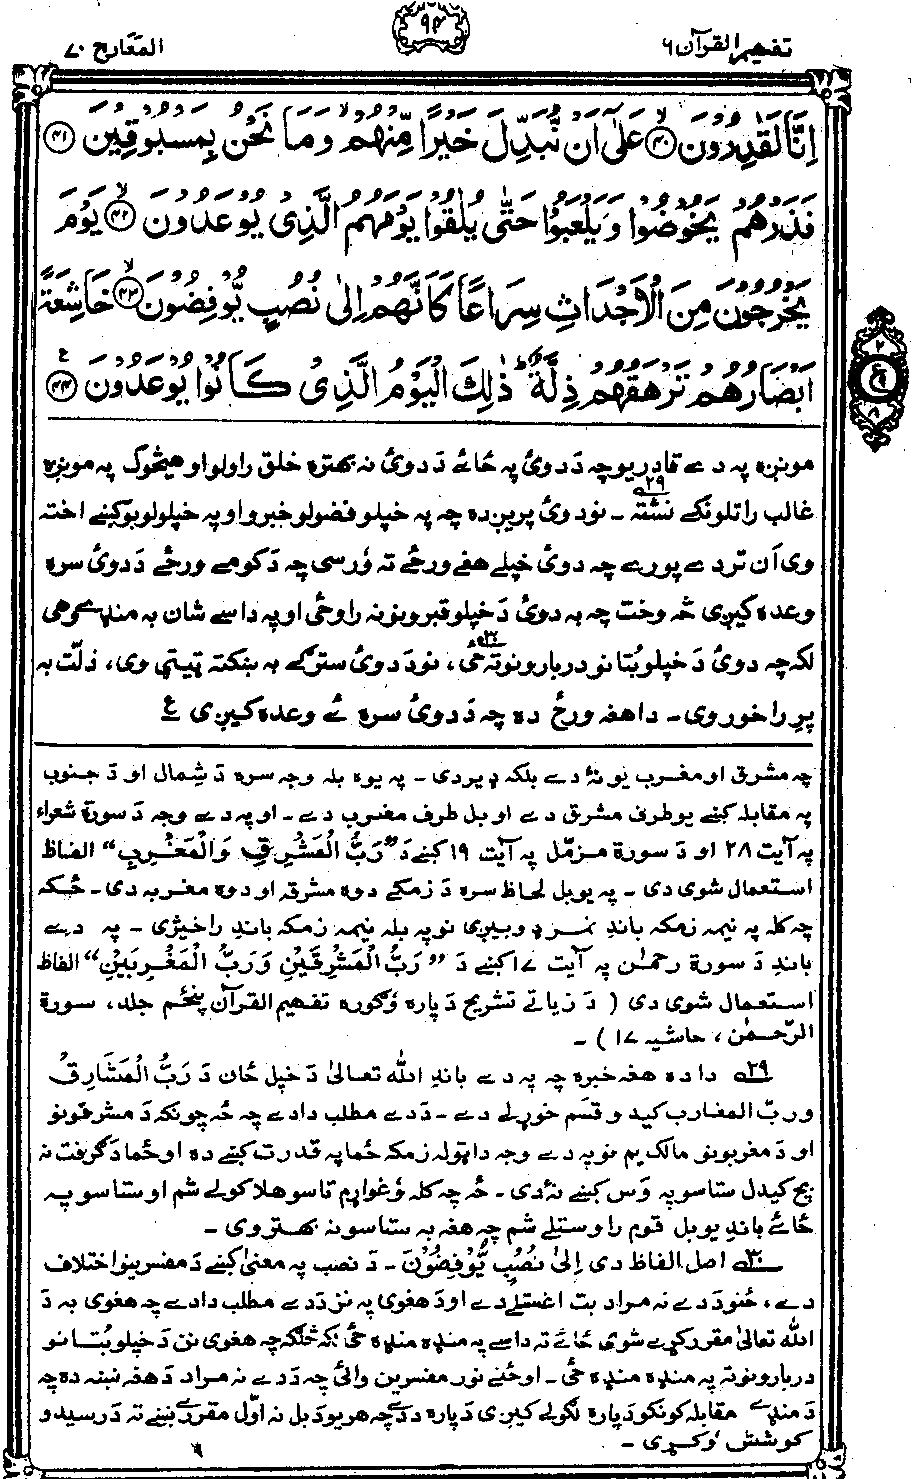 تفهیم القرآن ۶
۹۴
المعَارج ۷۰
اِنَّا لَقٰدِرُوْنَ ﴿۴۰﴾ عَلٰٓى اَنْ نُّبَدِّلَ خَيْرًا مِّنْهُمْ وَمَا نَحْنُ بِمَسْبُوْقِيْنَ ﴿۴۱﴾
فَذَرْهُمْ يَخُوْضُوْا وَيَلْعَبُوْا حَتّٰى يُلٰقُوْا يَوْمَهُمُ الَّذِىْ يُوْعَدُوْنَ ﴿۴۲﴾ يَوْمَ
يَخْرُجُوْنَ مِنَ الْاَجْدَاثِ سِرَاعًا كَاَنَّهُمْ اِلٰى نُصُبٍ يُّوْفِضُوْنَ ﴿۴۳﴾ خَاشِعَةً
اَبْصَارُهُمْ تَرْهَقُهُمْ ذِلَّةٌ ؕ ذٰلِكَ الْيَوْمُ الَّذِىْ كَانُوْا يُوْعَدُوْنَ ﴿۴۴﴾
مونږه په دے قادر یو چه دَ دوئ په ځائے دَ دوئ نه بهتره خلق راولو او هیڅوک په مونږه
غالب راتلونکے نشته ۲۹ـ نو دوئ پریږده چه په خپلو فضولو خبرو او په خپلو لوبو کښے اخته
وی اَن تردے پورے چه دوئ خپلے هغے ورځے ته وُرسی چه دَ کومے ورځے دَ دوئ سره
وعده کیږی څه وخت چه به دوئ دَ خپلو قبرونو نه راوځی او په داسے شان به منډے وهی
لکه چه دوئ دَ خپلو بُتانو دربارونو ته ځی ۳۰، نو دَ دوئ سترګے به ښکته ټیټی وی، ذلّت به
پرِ راخور وی ـ دا هغه ورځ ده چه دَ دوئ سره ئے وعده کیږی ع
چه مشرق او مغرب یو نهٔ دے بلکه ډیر دی ـ په یوه بله وجه سره دَ شِمال او دَ جنوب
په مقابله کښے یو طرف مشرق دے او بل طرف مغرب دے ـ او په دے وجه دَ سورة شعراء
په آیت ۲۸ او دَ سورة مزمّل په آیت ۱۹ کښے دَ "رَبُّ الْمَشْرِقِ وَالْمَغْرِبِ" الفاظ
استعمال شوی دی ـ په یو بل لحاظ سره دَ زمکے دوه مشرقه او دوه مغربه دی ـ ځکه
چه کله په نیمه زمکه باندِ نمر ډوبیږی نو په بله نیمه زمکه باندِ راخیژی ـ په دے
باندِ دَ سورة رحمٰن په آیت ۱۷ کښے دَ "رَبُّ الْمَشْرِقَيْنِ وَرَبُّ الْمَغْرِبَيْنِ" الفاظ
استعمال شوی دی ( دَ زیاتے تشریح دَ پاره وُګوره تفهیم القرآن پنځم جلد، سورة
الرّحمٰن، حاشیه ۱۷ ) ـ
۲۹ دا ده هغه خبره چه په دے باندِ الله تعالیٰ دَ خپل ځان دَ رَبُّ الْمَشَارِقُ
وربّ المغارب کیدو قسَم خوړلے دے ـ دَ دے مطلب دادے چه څه چونکه دَ مشرقونو
او دَ مغربونو مالک یم نو په دے وجه دا ټوله زمکه ځما په قدرت کښے ده او ځما دَ ګرفت نه
بچ کیدل ستاسو په وَس کښے نهٔ دی ـ څه چه کله وُغواړم تاسو هلاکولے شم او ستاسو په
ځائے باندِ یو بل قوم راوستلے شم چه هغه به ستاسو نه بهتر وی ـ
۳۰ اصل الفاظ دی اِلیٰ نُصُبٍ یُّوْفِضُوْنَ ـ دَ نصب په معنیٰ کښے دَ مفسرینو اختلاف
دے، څنو دَ دے نه مراد بت اغستلے دے او دَ هغوی په نزد دَ دے مطلب دادے چه هغوی به دَ
الله تعالیٰ مقرر کړے شوی ځائے ته داسے په منډه منډه ځی لکه څنګه چه هغوی نن دَ خپلو بُتانو
دربارونو ته په منډه منډه ځی ـ او ځنے نور مفسرین وائی چه دَ دے نه مراد دَ هغه نښه ده چه
دَ منډے مقابله کونکو دَ پاره لګولے کیږی دَ پاره دَ دے چه هر یو دَ بل نه اوّل مقررے نښے ته دَ رسیدو
کوشش وُکړی ـ